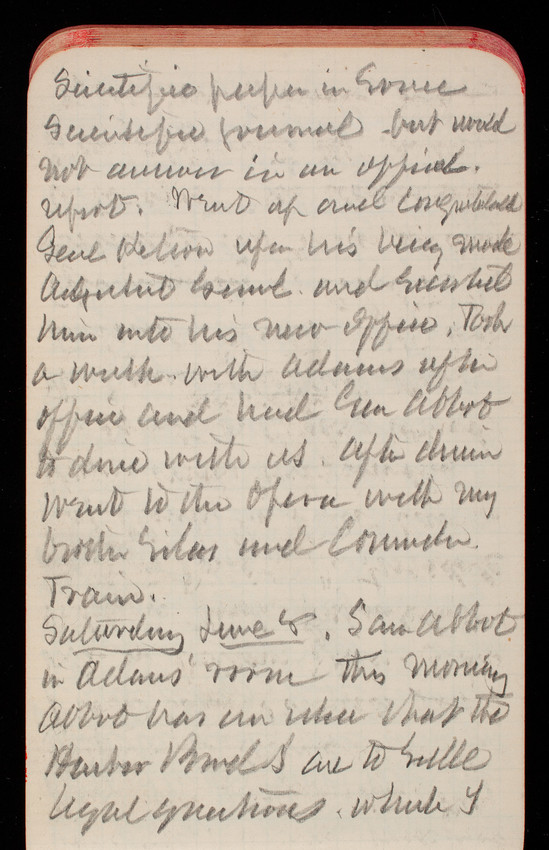 Scientific paper in Some
Scientific Journal but would
not answer in an official
report. Went up and Congratulated
Genl Kelton upon his being made
Adjutant Genl. and escorted
him into his new office. Took
a walk with Adams after
office and had Gen Abbot
to dine with us. after dinner
Went to the Opera with my
brother Silas and Commander
Train.
Saturday June 8. Saw Abbot
in Adams' room this morning
Abbot has an idea that the
Harbor Board are to settle
legal questions. while I